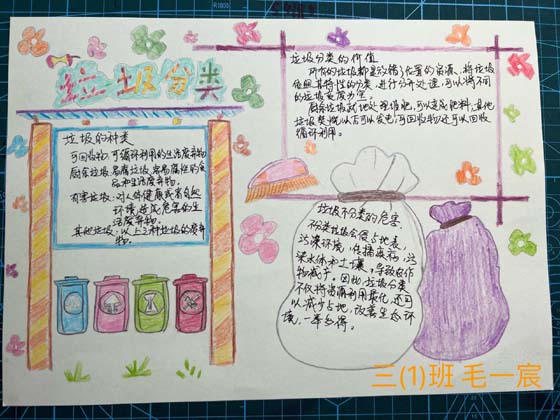 垃圾分类
垃圾的种类
可回收物:可循环利用的生活废弃物
厨余垃圾:易腐垃圾,容易腐烂的食
品和生活废弃物。
有害垃圾:对人体健康或者自然
环境造成危害的生
活废弃物。
其他垃圾:以上三种垃圾的废弃
物。
垃圾分类的价值
所有的垃圾都是放错了位置的资源,将垃圾
依照其特性的分类,进行分开处理,可以将不同
的垃圾变废为宝。
厨余垃圾就地处理堆肥,可以变成肥料,其他
垃圾焚烧以后可以发电,可回收物还可以回收
循环利用。
垃圾不分类的危害
不分类垃圾会侵占地表,
污染环境,传播疾病,污
染水体和土壤,导致农作
物减产。因此,垃圾分类
不仅将资源利用最大化,还可
以减少占地,改善生态环
境,一举多得。
三(1)班 毛一宸